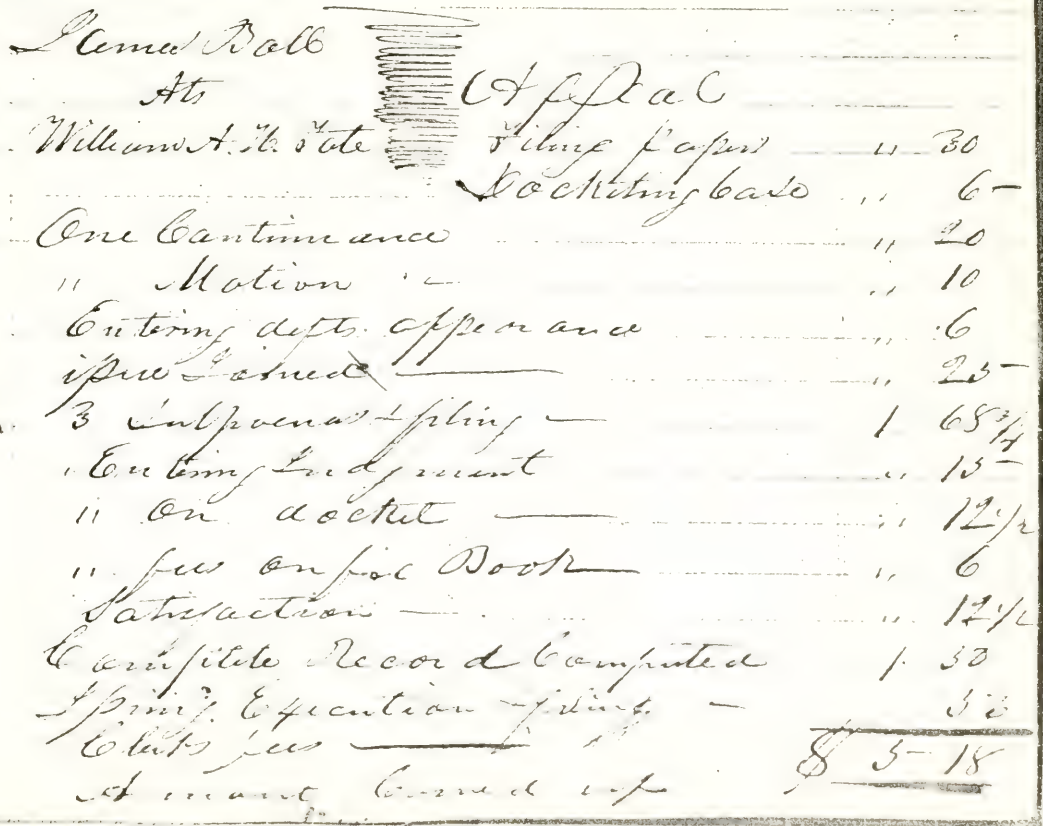 James Ball
Ats
Appeal
William A. H. Tate Filing papers " 30
Docketing Case " 6
One Cantinuance " 20
" Motion " 10
Entering defts. appearance " 6
issue Joined " 25
3 Subpoenas & filing 1 68 3/4
Entering Judgment " 15
" On docket " 12 1/2
" fees on fee Book " 6
Satisfaction " 12 1/2
Complete Record Computed 1 50
Issuing Execution & filing
Clerks fees $ 5 18
Amount Carried up